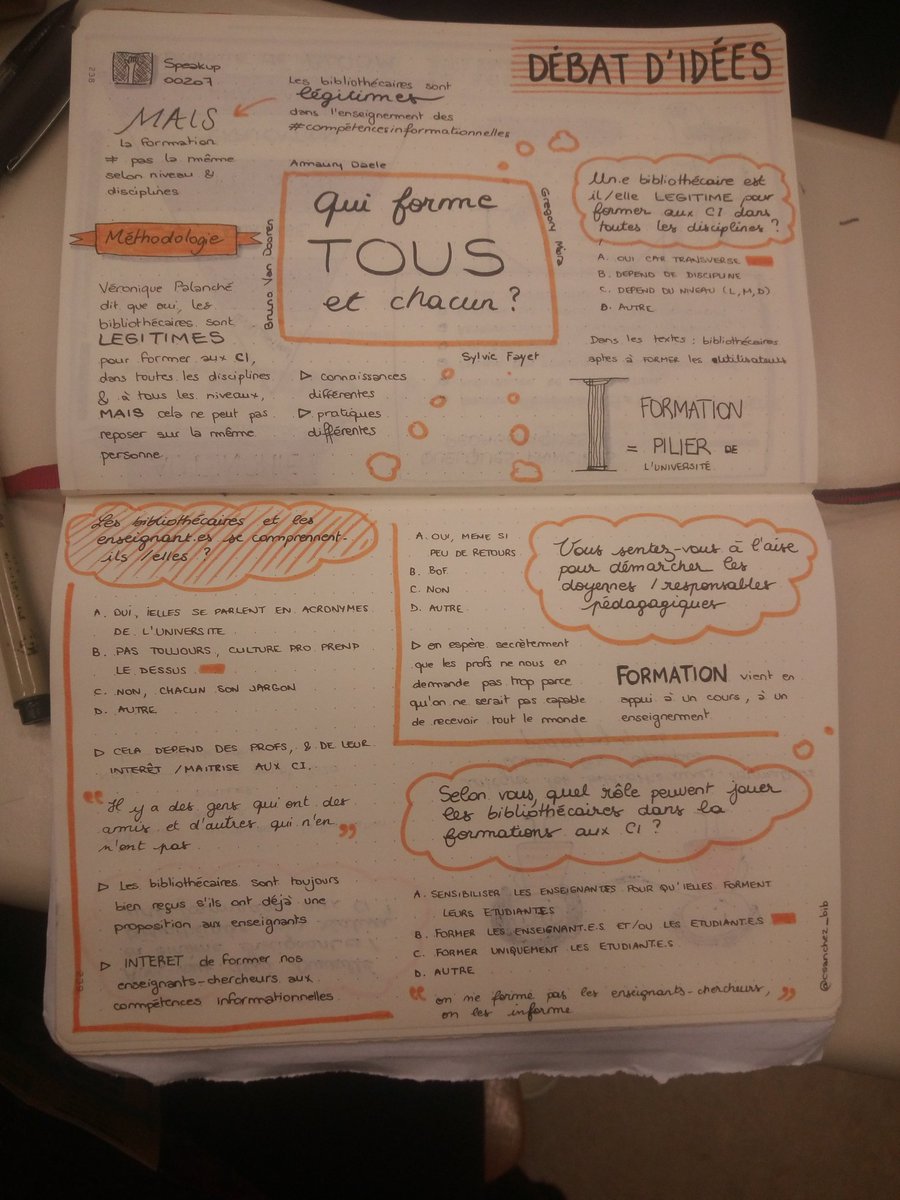 238
Speakup
00207
DÉBAT D'IDÉES
Les bibliothécaires sont
légitimes
dans l'enseignement des
#compétencesinformationnelles
MAIS
la formation
≠ pas la même
selon niveau &
disciplines
Méthodologie
Véronique Palanché
dit que oui, les
bibliothécaires sont
LEGITIMES
pour former aux CI,
dans toutes les disciplines
& à tous les niveaux,
MAIS cela ne peut pas
reposer sur la même
personne
Amaury Daele
Bruno Van Dooren
Qui forme
TOUS
et chacun ?
Sylvie Fayet
▷ connaissances
différentes
▷ pratiques
différentes
Un.e bibliothécaire est
il/elle LEGITIME pour
former aux CI dans
toutes les disciplines ?
A. OUI CAR TRANSVERSE
B. DEPEND DE DISCIPLINE
C. DEPEND DU NIVEAU (L, M, D)
D. AUTRE
Dans les textes : bibliothécaires
aptes à FORMER les utilisateurs
FORMATION
= PILIER DE
L'UNIVERSITÉ
Les bibliothécaires et les
enseignant.es se comprennent-
ils /elles ?
A. OUI, IELLES SE PARLENT EN ACRONYMES
DE L'UNIVERSITE
B. PAS TOUJOURS, CULTURE PRO PREND
LE DESSUS
C. NON, CHACUN SON JARGON
D. AUTRE
▷ CELA DEPEND DES PROFS, & DE LEUR
INTERÊT /MAITRISE AUX CI.
" Il y a des gens qui ont des
amis et d'autres qui n'en
n'ont pas "
▷ Les bibliothécaires sont toujours
bien reçus s'ils ont déjà une
proposition aux enseignants
▷ INTERET de former nos
enseignants-chercheurs aux
compétences informationnelles
239
A. OUI, MEME SI
PEU DE RETOURS
B. BOF
C. NON
D. AUTRE
▷ on espère secrètement
que les profs ne nous en
demande pas trop parce
qu'on ne serait pas capable
de recevoir tout le monde
Vous sentez-vous à l'aise
pour démarcher les
doyennes / responsables
pédagagiques
FORMATION vient en
appui à un cours, à un
enseignement
Selon vous, quel rôle peuvent jouer
les bibliothécaires dans la
formations aux CI ?
A. SENSIBILISER LES ENSEIGNANTES POUR QU'IELLES FORMENT
LEURS ETUDIANTES
B. FORMER LES ENSEIGNANT.E.S ET/OU LES ETUDIANT.E.S
C. FORMER UNIQUEMENT LES ETUDIANT.E.S
D. AUTRE
" on ne forme pas les enseignants-chercheurs, "
on les informe
@csanchez_bib